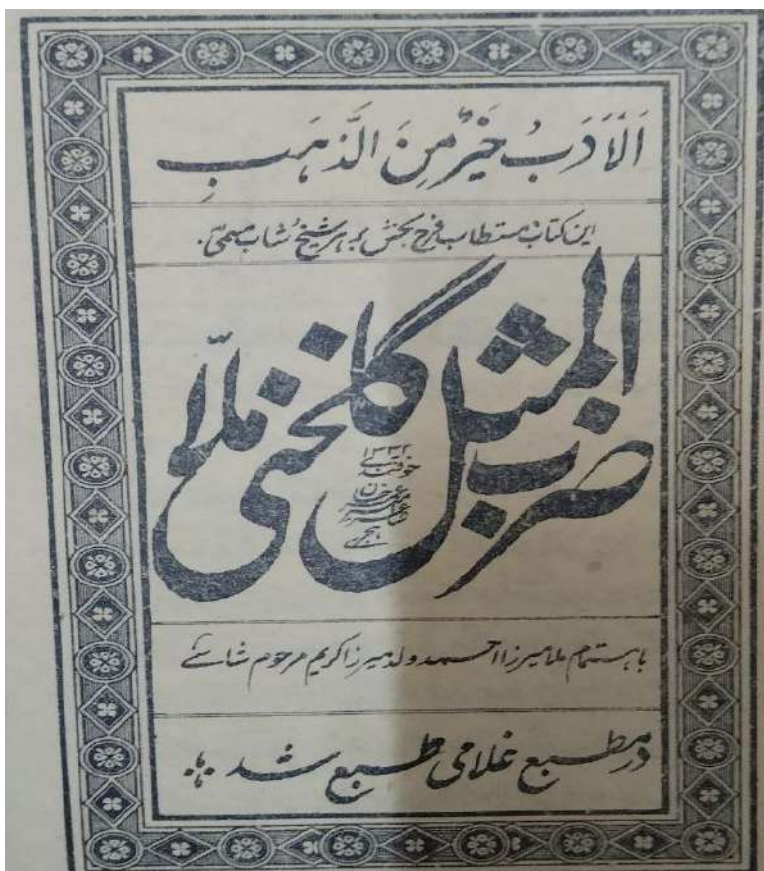 اَلْاَدَبُ خَیْرٌ مِنَ الَّذهَبِ
این کتاب مستطاب فرح بخش بر هر شیخ و شاب مسمی به
ضرب المثل گلخنی ملا
۱۳۳۲
باهتمام ملا میرزا احمد ولد میرزا کریم مرحوم تاشکندی
در مطبع غلامی طبع شد